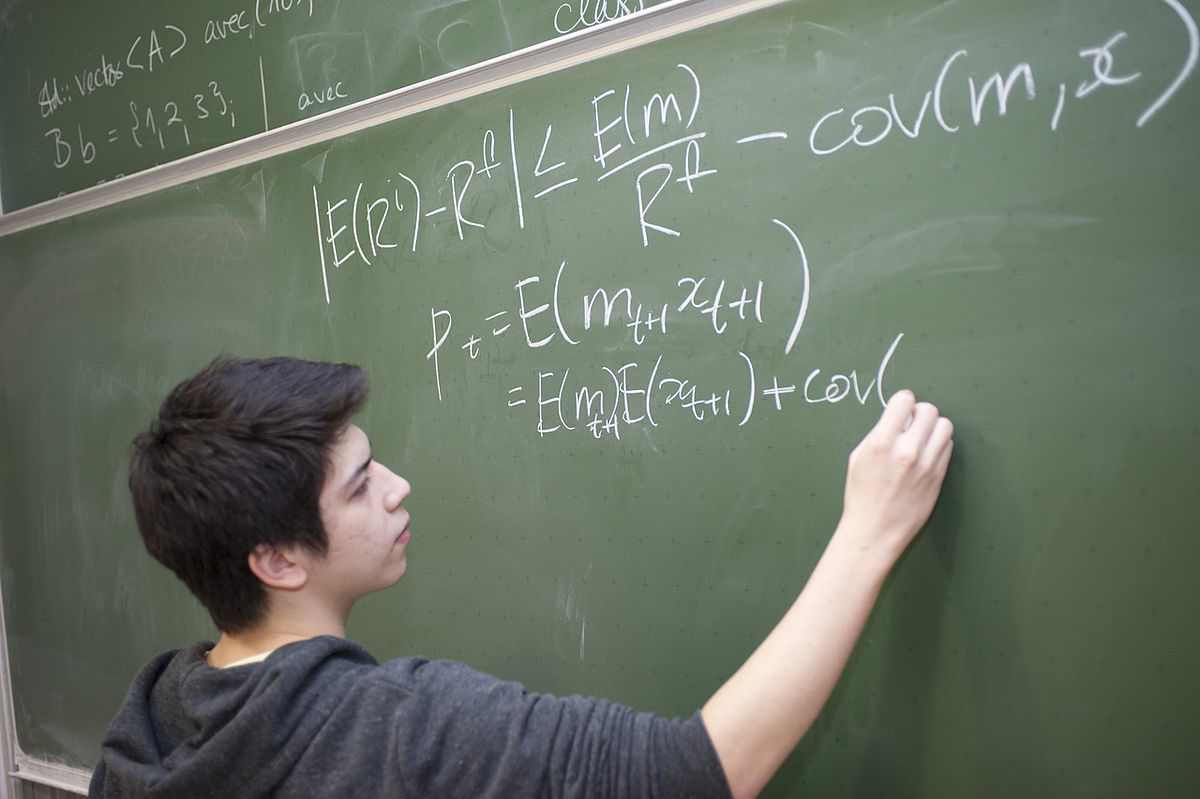 std::vector<A> avec
class
Bb = {1,2,3}; | avec
|E(Rⁱ) - Rᶠ| ≤ E(m)/Rᶠ - cov(m, x)
pₜ = E(mₜ₊₁ xₜ₊₁)
= E(mₜ₊₁)E(xₜ₊₁) + cov(